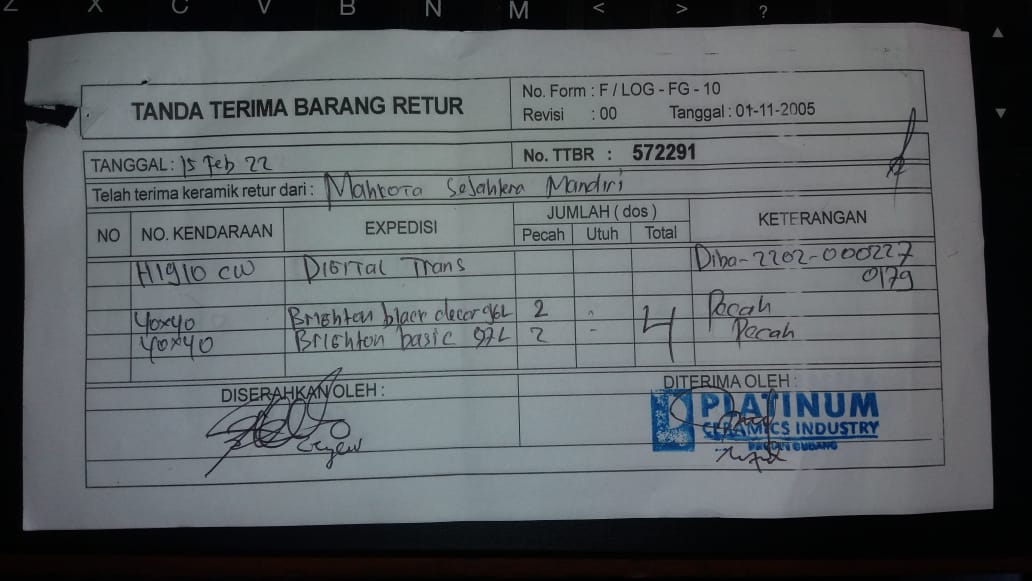 Z X C V B N M < > ?
TANDA TERIMA BARANG RETUR
No. Form : F / LOG - FG - 10
Revisi : 00 Tanggal : 01-11-2005
TANGGAL : 15 Feb 22
No. TTBR : 572291
Telah terima keramik retur dari : Mahkota Sejahtera Mandiri
NO NO. KENDARAAN EXPEDISI JUMLAH ( dos ) KETERANGAN
Pecah Utuh Total
H1910 CW DIGITAL Trans Diba-2202-000227
0179
40x40 Brighton black decor 2 - 4 Pecah
40x40 Brighton basic 2 - Pecah
DISERAHKAN OLEH : DITERIMA OLEH :
PLATINUM
CERAMICS INDUSTRY
GUDANG